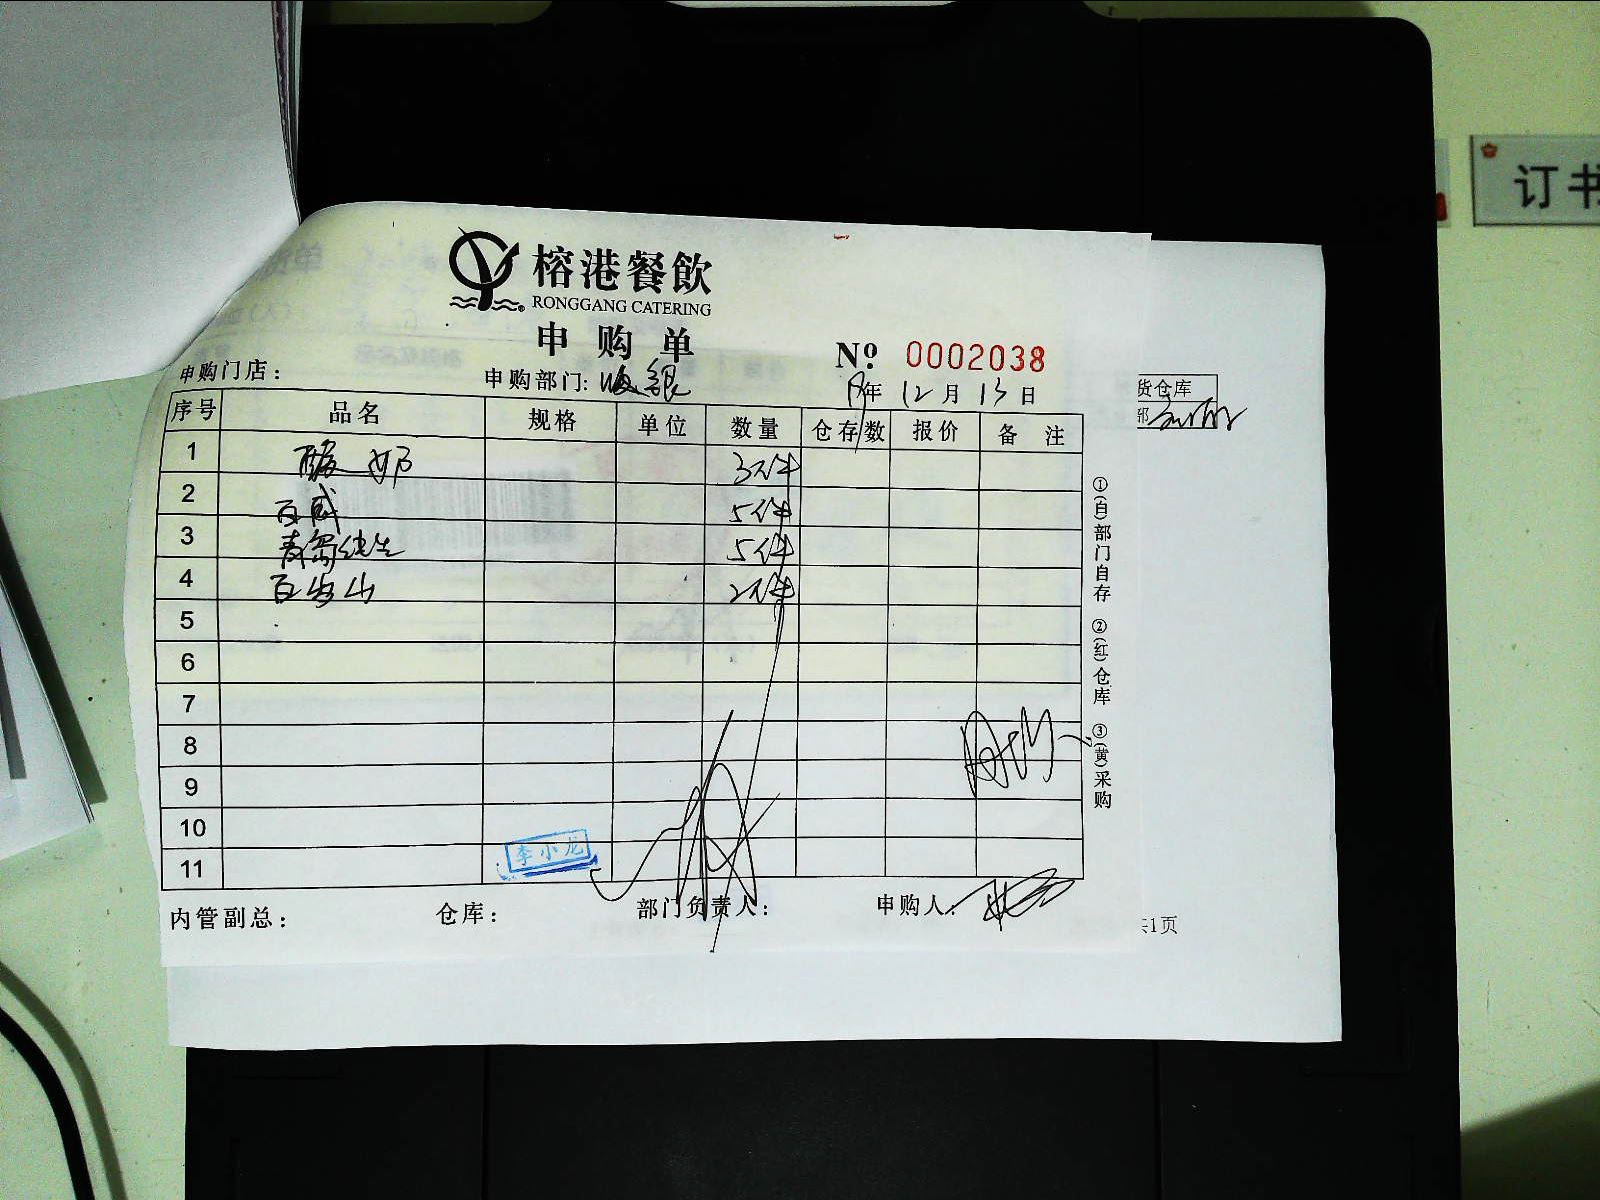 订书
榕港餐飲
RONGGANG CATERING
申购单
№ 0002038
申购门店： 申购部门: 海银 19年 12月 13日
货仓库
部
序号 品名 规格 单位 数量 仓存数 报价 备注
1 酸奶 3件
2 百威 5件
3 青岛纯生 5件
4 百岁山 2件
5
6
7
8
9
10
11
李小龙
①(自)部门自存 ②(红)仓库 ③(黄)采购
内管副总： 仓库： 部门负责人： 申购人：
共1页